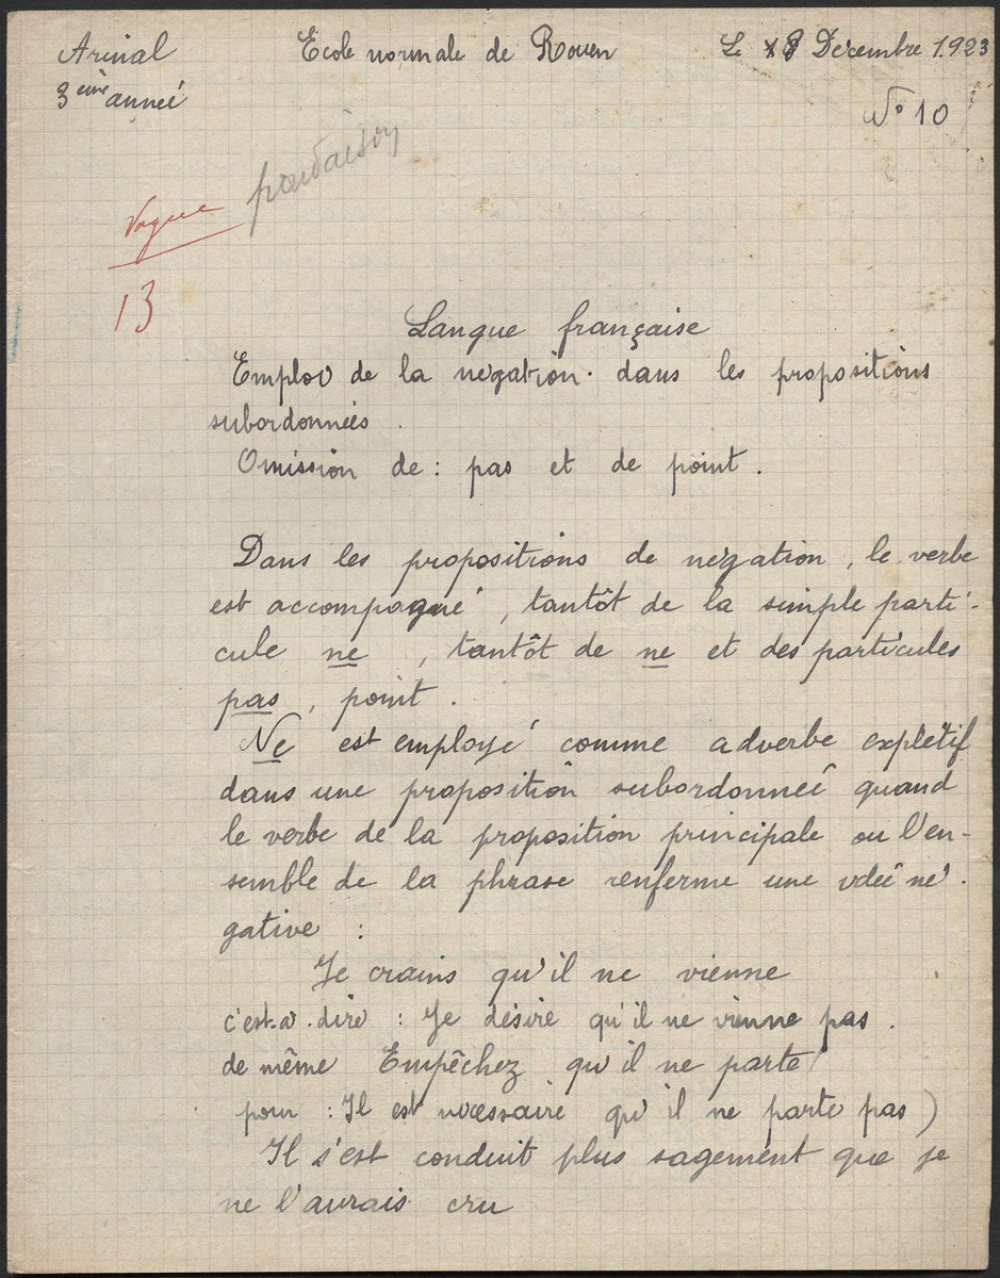 Arinal École normale de Rouen Le 18 Décembre 1923
3ème année
N° 10
Vague
13
Langue française
Emploi de la négation dans les propositions
subordonnées.
Omission de : pas et de point.
Dans les propositions de négation, le verbe
est accompagné, tantôt de la simple parti-
cule ne, tantôt de ne et des particules
pas, point.
Ne est employé comme adverbe explétif
dans une proposition subordonnée quand
le verbe de la proposition principale ou l'en-
semble de la phrase renferme une idée né-
gative :
Je crains qu'il ne vienne
c'est-à-dire : Je désire qu'il ne vienne pas.
de même Empêchez qu'il ne parte
pour : Il est nécessaire qu'il ne parte pas)
Il s'est conduit plus sagement que je
ne l'aurais cru